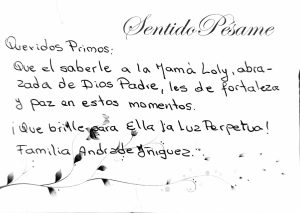 Sentido Pésame
Queridos Primos:
Que el saberle a la Mamá Loly, abra-
zada de Dios Padre, les de fortaleza
y paz en estos momentos.
¡Que brille para Ella la Luz Perpetua!
Familia Andrade Iñiguez.